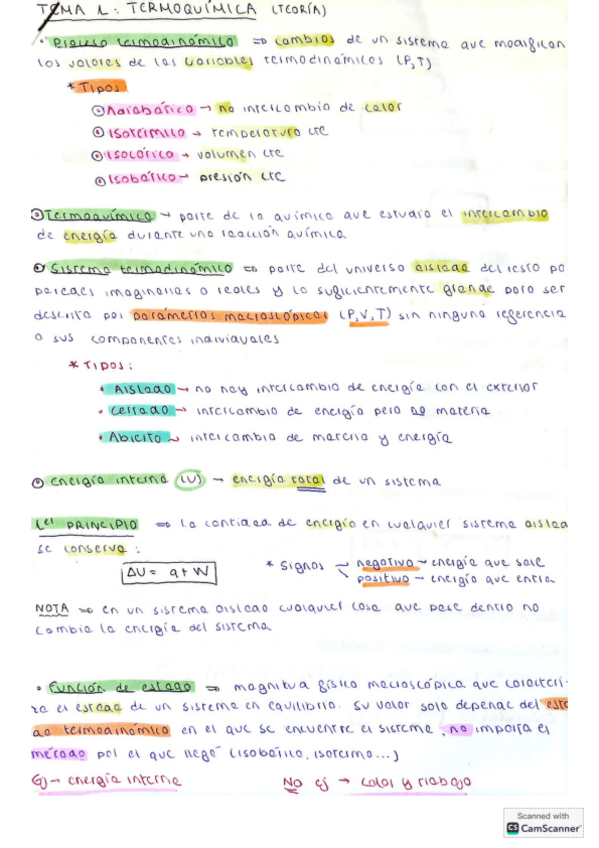 TEMA 1: TERMOQUÍMICA (TEORÍA)
• Proceso termodinámico ⇒ cambios de un sistema que modifican
los valores de las variables termodinámicas (P,T)
* Tipos
Adiabático → no intercambio de calor
Isotérmico → temperatura cte
Isocórico → volumen cte
Isobárico → presión cte
Termoquímica → parte de la química que estudia el intercambio
de energía durante una reacción química
Sistema termodinámico ⇒ parte del universo aislada del resto po
paredes imaginarias o reales y lo suficientemente grande para ser
descrita por parámetros macroscópicos (P,V,T) sin ninguna referencia
a sus componentes individuales
* TIPOS:
• Aislado → no hay intercambio de energía con el exterior
• Cerrado → intercambio de energía pero no materia
• Abierto → intercambio de materia y energía
Energía interna (U) → energía total de un sistema
1er PRINCIPIO ⇒ La cantidad de energía en cualquier sistema aislad
se conserva:
ΔU = q + W
* Signos negativo → energía que sale
positivo → energía que entra
NOTA ⇒ en un sistema aislado cualquier cosa que pase dentro no
cambia la energía del sistema
• Función de estado ⇒ magnitud física macroscópica que caracteri-
za el estado de un sistema en equilibrio. Su valor solo depende del esta
do termodinámico en el que se encuentre el sistema, no importa el
método por el que llegó (isobárico, isotermo...)
Ej → energía interna No ej → calor y trabajo
Scanned with
CS CamScanner